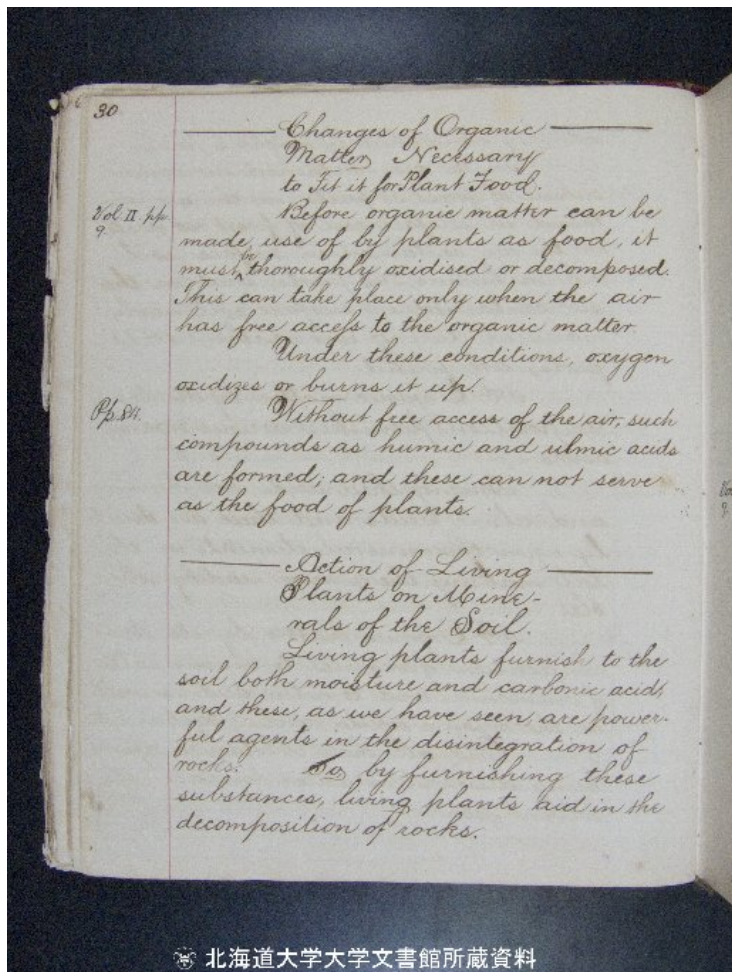 30
Changes of Organic
Matter Necessary
to Fit it for Plant Food.
Vol II. pp.
9.
Before organic matter can be
made, use of by plants as food, it
must be thoroughly oxidised or decomposed.
This can take place only when the air
has free access to the organic matter
Under these conditions, oxygen
oxidizes or burns it up.
Without free access of the air, such
compounds as humic and ulmic acids
are formed; and these can not serve
as the food of plants.
Action of Living
Plants on Mine-
rals of the Soil.
Living plants furnish to the
soil both moisture and carbonic acid,
and these, as we have seen, are power-
ful agents in the disintegration of
rocks. So by furnishing these
substances, living plants aid in the
decomposition of rocks.
北海道大学大学文書館所蔵資料